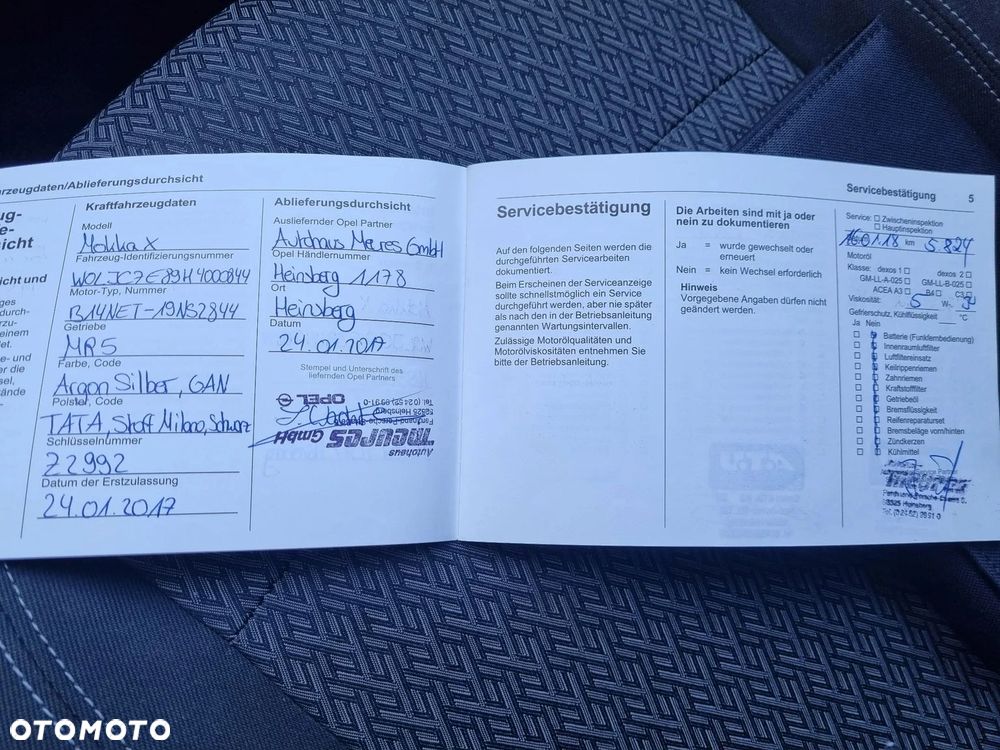 rzeugdaten/Ablieferungsdurchsicht
ug-
e-
sicht
Kraftfahrzeugdaten
Modell
Mokka X
Fahrzeug-Identifizierungsnummer
W0LJC7E89H4000844
Motor-Typ, Nummer
B14NET-19NS2844
Getriebe
MR5
Farbe, Code
Argon Silber, GAN
Polster, Code
TATA, Stoff Milano, Schwarz
Schlüsselnummer
Z2992
Datum der Erstzulassung
24.01.2017
Ablieferungsdurchsicht
Ausliefernder Opel Partner
Autohaus Meures GmbH
Opel Händlernummer
Heinsberg 1178
Ort
Heinsberg
Datum
24.01.2017
Stempel und Unterschrift des
liefernden Opel Partners
Autohaus
meures GmbH
52525 Heinsberg
OPEL
Servicebestätigung 5
Servicebestätigung
Auf den folgenden Seiten werden die
durchgeführten Servicearbeiten
dokumentiert.
Beim Erscheinen der Serviceanzeige
sollte schnellstmöglich ein Service
durchgeführt werden, aber nie später
als nach den in der Betriebsanleitung
genannten Wartungsintervallen.
Zulässige Motorölqualitäten und
Motorölviskositäten entnehmen Sie
bitte der Betriebsanleitung.
Die Arbeiten sind mit ja oder
nein zu dokumentieren
Ja = wurde gewechselt oder
erneuert
Nein = kein Wechsel erforderlich
Hinweis
Vorgegebene Angaben dürfen nicht
geändert werden.
Service: Zwischeninspektion
Hauptinspektion
16.01.18 km 5.824
Motoröl
Klasse: dexos 1 dexos 2
GM-LL-A-025 GM-LL-B-025
ACEA A3 B4 C3
Viskosität: 5 W-
Gefrierschutz, Kühlflüssigkeit °C
Ja Nein
Batterie (Funkfernbedienung)
Innenraumluftfilter
Luftfiltereinsatz
Keilrippenriemen
Zahnriemen
Kraftstofffilter
Getriebeöl
Bremsflüssigkeit
Reifenreparaturset
Bremsbeläge vorn/hinten
Zündkerzen
Kühlmittel
meures
Heinsberg
OTOMOTO